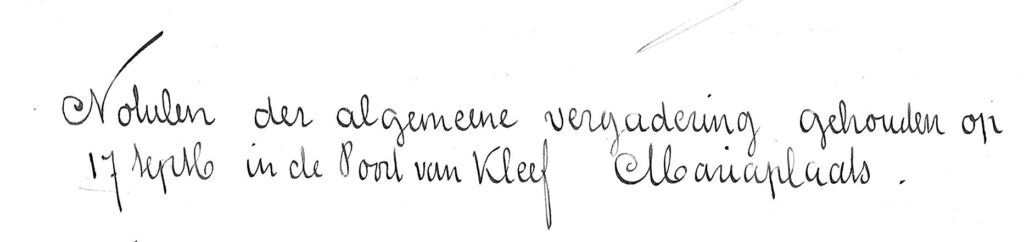 Notulen der algemeene vergadering gehouden op
17 Septb in de Poort van Kleef Mariaplaats.